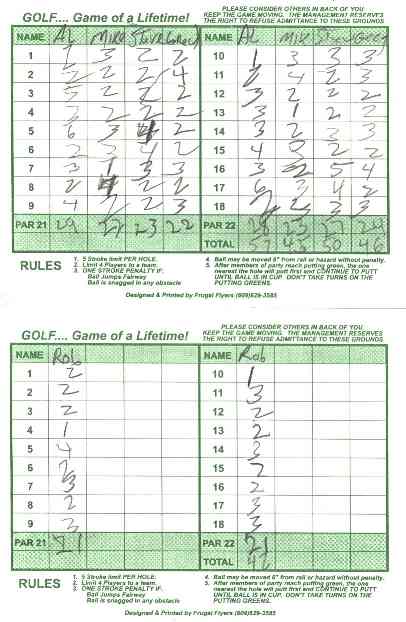 GOLF.... Game of a Lifetime!
PLEASE CONSIDER OTHERS IN BACK OF YOU
KEEP THE GAME MOVING. THE MANAGEMENT RESERVES
THE RIGHT TO REFUSE ADMITTANCE TO THESE GROUNDS
NAME AL Mike Steve Greg NAME AL Mike Steve Greg
1 2 3 2 2 10 1 3 3 3
2 2 2 2 4 11 4 2 3
3 5 2 2 2 12 3 2 2 2
4 3 2 2 2 13 3 1 2 2
5 6 3 4 2 14 3 2 3 3
6 3 4 2 15 4 3 2 2
7 3 1 3 3 16 3 2 5 4
8 2 4 2 2 17 6 3 4 2
9 4 2 2 3 18 2 3 3
PAR 21 29 22 23 22 PAR 22 28 23 27 24
TOTAL 57 45 50 46
RULES
1. 5 Stroke limit PER HOLE.
2. Limit 4 Players to a team.
3. ONE STROKE PENALTY IF:
Ball Jumps Fairway
Ball is snagged in any obstacle
4. Ball may be moved 6" from rail or hazard without penalty.
5. After members of party reach putting green, the one
nearest the hole will putt first and CONTINUE TO PUTT
UNTIL BALL IS IN CUP. DON'T TAKE TURNS ON THE
PUTTING GREENS.
Designed & Printed by Frugal Flyers (609)629-3585
GOLF.... Game of a Lifetime!
PLEASE CONSIDER OTHERS IN BACK OF YOU
KEEP THE GAME MOVING. THE MANAGEMENT RESERVES
THE RIGHT TO REFUSE ADMITTANCE TO THESE GROUNDS
NAME Rob NAME Rob
1 2 10 1
2 2 11 3
3 2 12 2
4 1 13 2
5 4 14 3
6 2 15 2
7 3 16 2
8 2 17 3
9 3 18 3
PAR 21 21 PAR 22 21
TOTAL 42
RULES
1. 5 Stroke limit PER HOLE.
2. Limit 4 Players to a team.
3. ONE STROKE PENALTY IF:
Ball Jumps Fairway
Ball is snagged in any obstacle
4. Ball may be moved 6" from rail or hazard without penalty.
5. After members of party reach putting green, the one
nearest the hole will putt first and CONTINUE TO PUTT
UNTIL BALL IS IN CUP. DON'T TAKE TURNS ON THE
PUTTING GREENS.
Designed & Printed by Frugal Flyers (609)629-3585